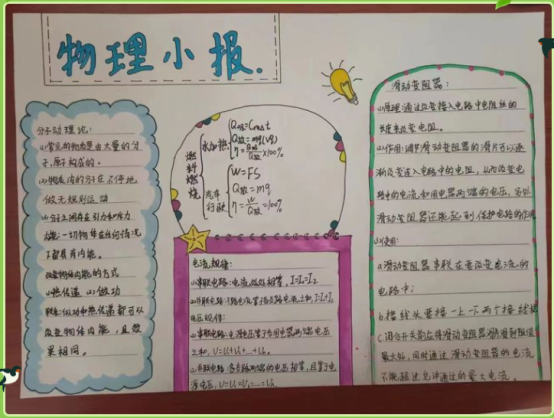 物理小报.
分子动理论:
(1)常见的物质是由大量的分
子,原子构成的。
(2)物质内的分子在不停地
做无规则运动
(3)分子之间存在引力和斥力
内能:一切物体在任何情况
下都具有内能。
改变物体内能的方式
(1)热传递 (2)做功
做功和热传递都可以
改变物体内能,且效
果相同。
燃料燃烧
水加热
Q吸=Cm△t
Q放=mq(Vq)
η=Q吸/Q放×100%
汽车行驶
W=FS
Q放=mq
η=W/Q放×100%
电流规律:
(1)串联电路:电流处处相等,I=I₁=I₂
电压规律:
(1)串联电路:电源电压等于各用电器两端电压
之和,U=U₁+U₂+…+Uₙ
(2)并联电路:各支路两端的电压相等,且等于电
源电压,U=U₁=U₂=…=Uₙ
滑动变阻器:
(1)原理:通过改变接入电路中电阻丝的
长度来改变电阻。
(2)作用:调节滑动变阻器的滑片可以逐
渐改变连入电路中的电阻,从而改变电
路中的电流和用电器两端的电压,还以
滑动变阻器还能起到保护电路的作用
(3)使用:
a.滑动变阻器串联在要改变电流的
电路中;
b.接线头要接一上一下两个接线柱
C.闭合开关前应将滑动变阻器滑片
最大处,同时通过滑动变阻器的电流
不能超过允许通过的最大电流.